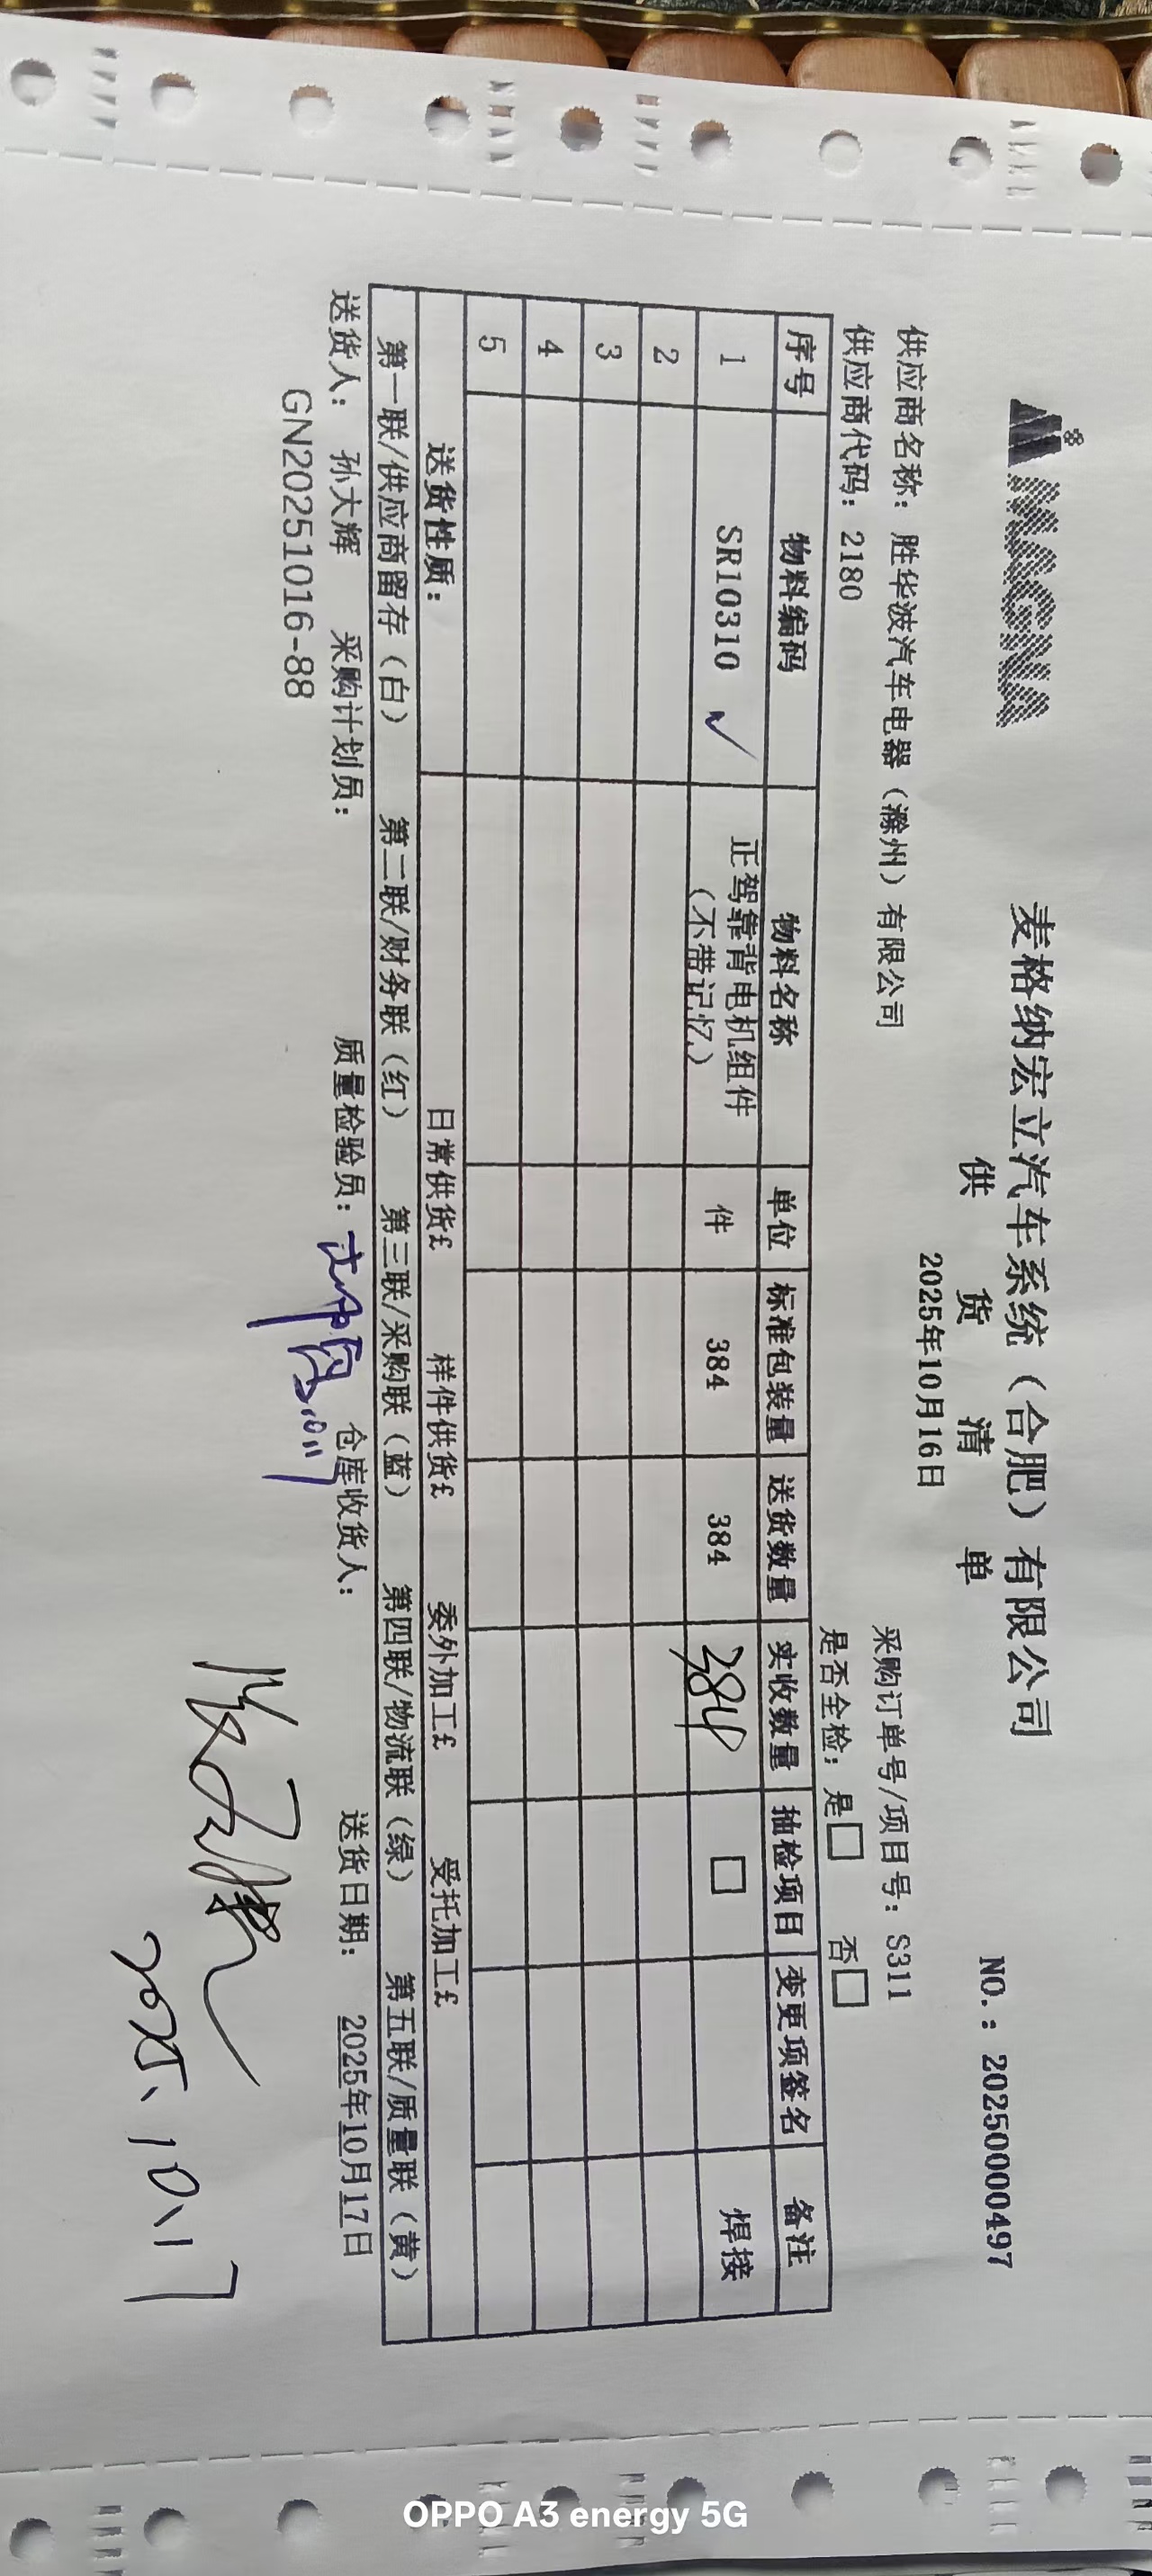 MAGNA
麦格纳宏立汽车系统（合肥）有限公司
供 货 清 单
NO.: 2025000497
2025年10月16日
供应商名称: 胜华波汽车电器（滁州）有限公司
采购订单号/项目号: S311
供应商代码: 2180
是否全检: 是□ 否□
序号 物料编码 物料名称 单位 标准包装量 送货数量 实收数量 抽检项目 变更项签名 备注
1 SR10310 ✓ 正驾靠背电机组件 件 384 384 384 □ 焊接
（不带记忆）
2
3
4
5
送货性质: 日常供货£ 样件供货£ 委外加工£ 受托加工£
第一联/供应商留存（白） 第二联/财务联（红） 第三联/采购联（蓝） 第四联/物流联（绿） 第五联/质量联（黄）
送货人: 孙大辉 采购计划员: 质量检验员: 仓库收货人: 送货日期: 2025年10月17日
GN20251016-88
2025.10.17
OPPO A3 energy 5G